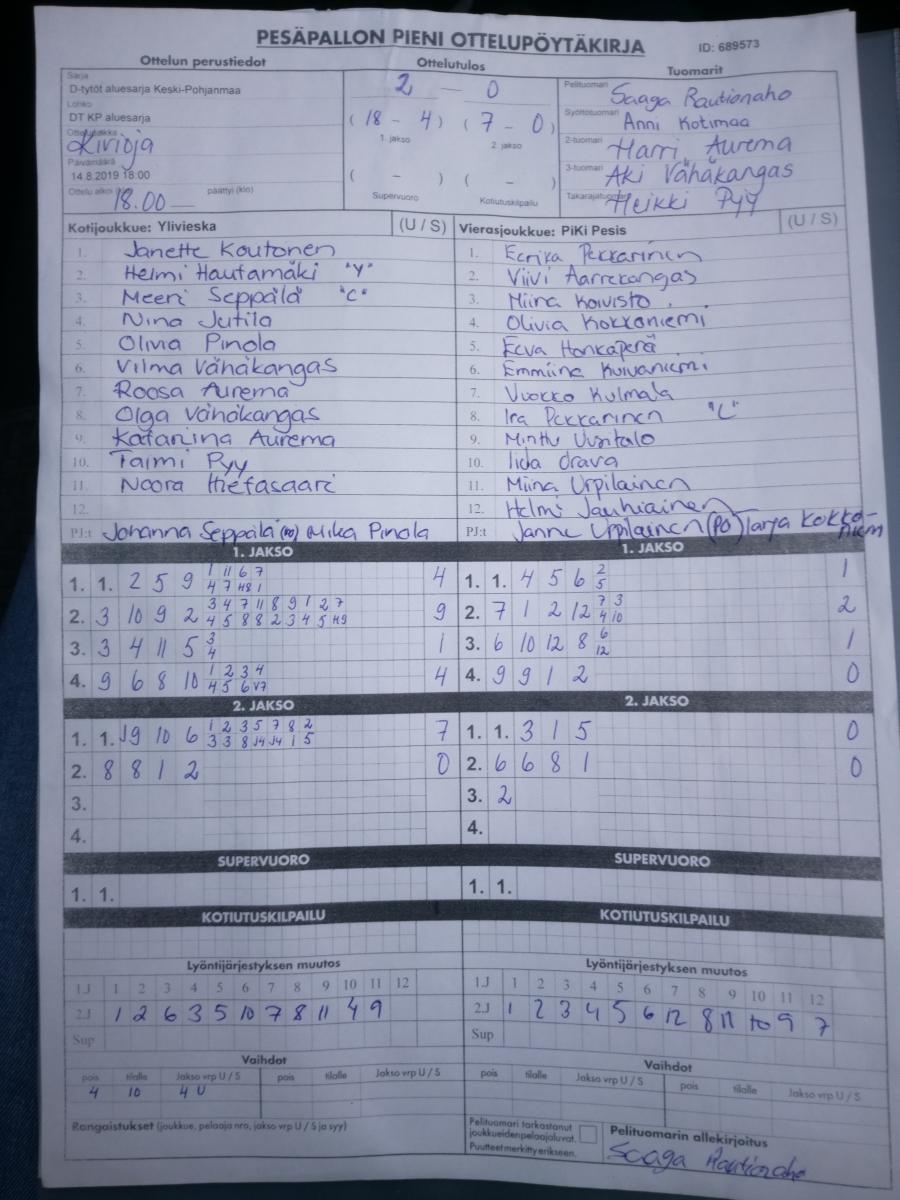 PESÄPALLON PIENI OTTELUPÖYTÄKIRJA ID: 689573
Ottelun perustiedot Ottelutulos Tuomarit
Sarja
D-tytöt aluesarja Keski-Pohjanmaa
Lohko
DT KP aluesarja
Ottelupaikka
Kivioja
Päivämäärä
14.8.2019 18:00
Ottelu alkoi (klo) päättyi (klo)
18.00
2 — 0
( 18 - 4 ) ( 7 - 0 )
1. jakso 2. jakso
( - ) ( - )
Supervuoro Kotiutuskilpailu
Pelituomari Saaga Rautionaho
Syöttötuomari Anni Kotimaa
2-tuomari Harri Aurema
3-tuomari Aki Vähäkangas
Takarajatuomari Heikki Pyy
Kotijoukkue: Ylivieska (U / S)
1. Janette Koutonen
2. Helmi Hautamäki "Y"
3. Meeri Seppälä "C"
4. Nina Jutila
5. Olivia Pinola
6. Vilma Vähäkangas
7. Roosa Aurema
8. Olga Vähäkangas
9. Katariina Aurema
10. Taimi Pyy
11. Noora Hietasaari
12.
PJ:t Johanna Seppälä (PO) Mika Pinola
Vierasjoukkue: PiKi Pesis (U / S)
1. Eerika Pekkarinen
2. Viivi Aarrekangas
3. Miina Koivisto
4. Olivia Kokkoniemi
5. Eeva Honkaperä
6. Emmiina Kuivaniemi
7. Vuokko Kulmala
8. Ira Pekkarinen "C"
9. Minttu Uusitalo
10. Iida Orava
11. Miina Urpilainen
12. Helmi Jauhiainen
PJ:t Janne Urpilainen (PO) Tarja Kokko-
niemi
1. JAKSO
1. 1. 2 5 9 1 11 6 7 4
4 7 H8 1
2. 3 10 9 2 3 4 7 11 8 9 1 2 7 9
4 5 8 8 2 3 4 5 H9
3. 3 4 11 5 3 1
4
4. 9 6 8 10 1 2 3 4 4
4 5 6 V7
2. JAKSO
1. 1. J9 10 6 1 2 3 5 7 8 2 7
3 3 8 J4 J4 1 5
2. 8 8 1 2 0
3.
4.
SUPERVUORO
1. 1.
KOTIUTUSKILPAILU
1. JAKSO
1. 1. 4 5 6 2 1
5
2. 7 1 2 12 7 3 2
4 10
3. 6 10 12 8 6 1
12
4. 9 9 1 2 0
2. JAKSO
1. 1. 3 1 5 0
2. 6 6 8 1 0
3. 2
4.
SUPERVUORO
1. 1.
KOTIUTUSKILPAILU
Lyöntijärjestyksen muutos
1.J 1 2 3 4 5 6 7 8 9 10 11 12
2.J 1 2 6 3 5 10 7 8 11 4 9
Sup
Lyöntijärjestyksen muutos
1.J 1 2 3 4 5 6 7 8 9 10 11 12
2.J 1 2 3 4 5 6 12 8 11 10 9 7
Sup
Vaihdot
pois tilalle Jakso vrp U / S pois tilalle Jakso vrp U / S
4 10 4 U
Vaihdot
pois tilalle Jakso vrp U / S pois tilalle Jakso vrp U / S
Rangaistukset (joukkue, pelaaja nro, jakso vrp U / S ja syy)
Pelituomari tarkastanut
joukkueidenpelaajaluvat.
Puutteet merkitty erikseen.
Pelituomarin allekirjoitus
Saaga Rautionaho